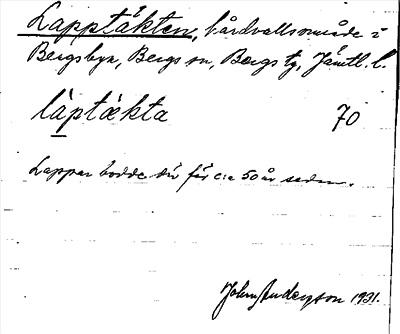 Lapptäkten, hårdvallsområde i
Bergsbyn, Bergs sn, Bergs tg, Jämtl. l.
làptækta 70
Lappar bodde där för c:a 50 år sedan.
John Anderzon 1931.